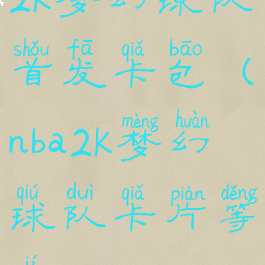 2K梦幻球队
shǒu fā qiǎ bāo
首发卡包（
mèng huàn
nba2K梦幻
qiú duì qiǎ piàn děng
球队卡片等
jí